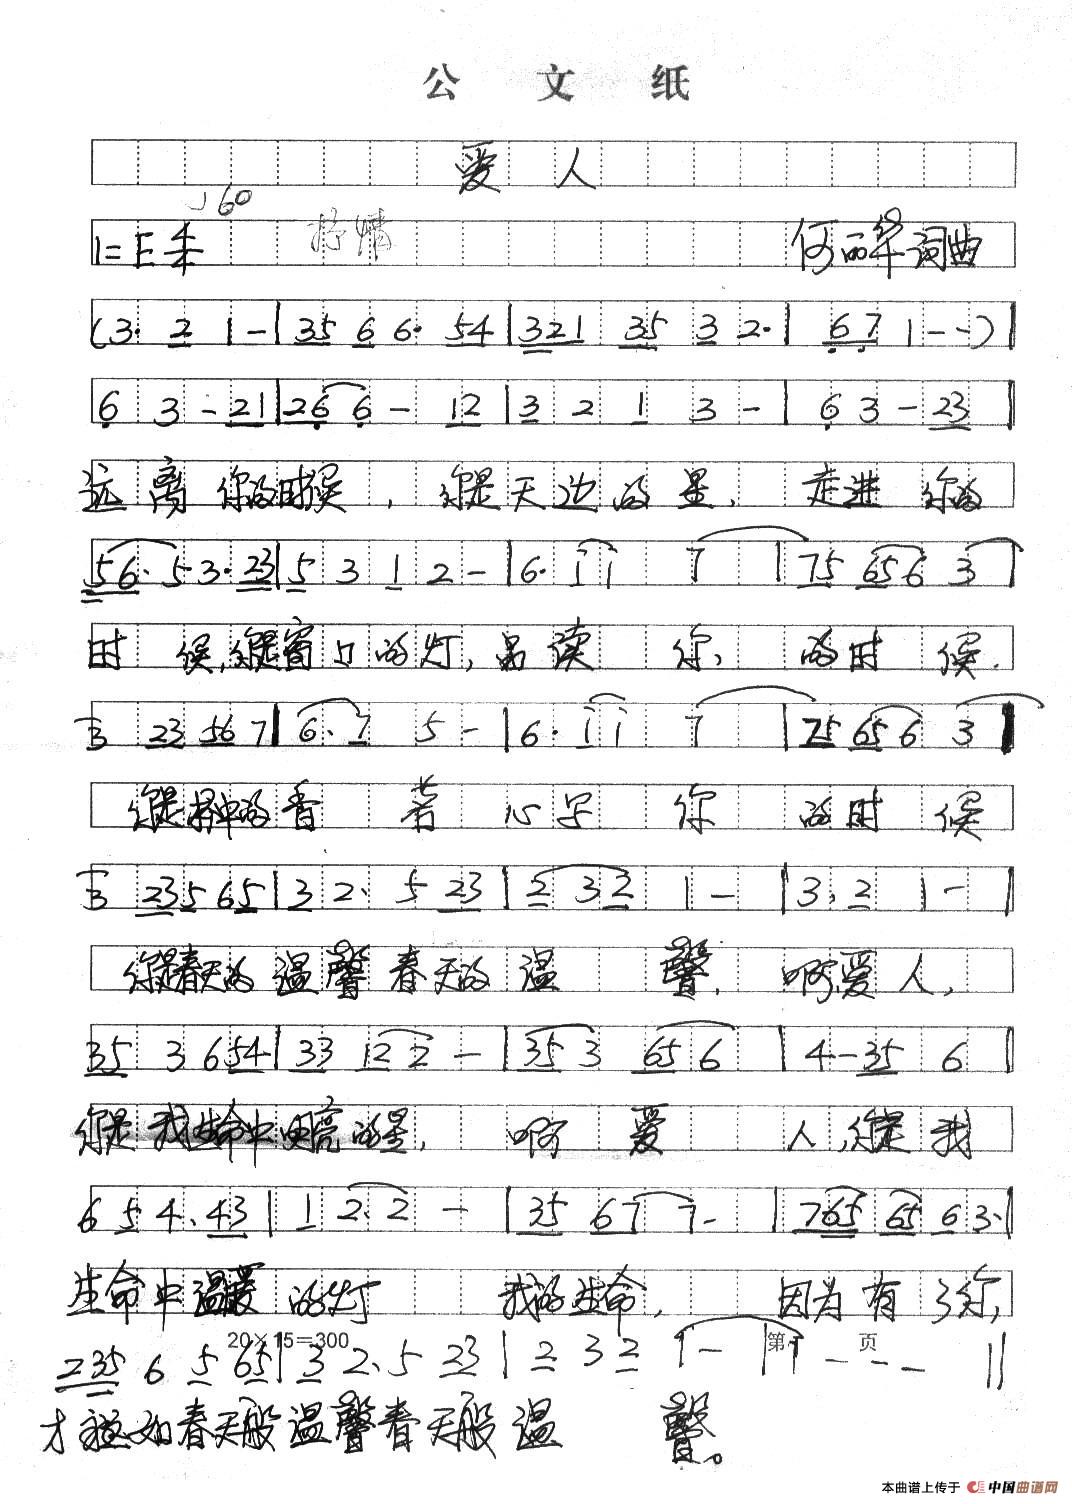 公 文 纸
爱 人
♩60
1=E 4/4 抒情 何丽华词曲
(3· 2 1 - | 35 6 6· 54 | 321 35 3 2· | 67 1 - - ) |
6 3 - 21 | 26 6 - 12 | 3 2 1 3 - | 6 3 - 23 |
远 离 你的时候, 你是天边的星, 走进 你的
56· 5 3· 23 | 5 3 1 2 - | 6· i i 7 | 75 65 6 3 |
时 候,你是窗口的灯,品读 你, 的时 候.
3 23 56 7 | 6· 7 5 - | 6· i i 7 | 75 65 6 3 |
你是 中的香 若 心 字 你 的时 候
3 23 5 65 | 3 2· 5 23 | 2 3 2 1 - | 3· 2 1 - |
你是春天的 温馨 春天的 温 馨. 啊,爱人,
35 3 6 54 | 33 12 2 - | 35 3 65 6 | 4 - 35 6 |
你是 我生命中 亮的星, 啊 爱 人,你是 我
6 5 4· 43 | 1 2· 2 - | 35 67 7 - | 765 65 6 3· |
生命中温暖 的灯 我的生命, 因为有 了你,
20×15=300 第 页
235 6 5 65 | 3 2· 5 23 | 2 3 2 1 - | 1 - - - ||
才 如春天般温馨春天般温 馨。
本曲谱上传于 中国曲谱网